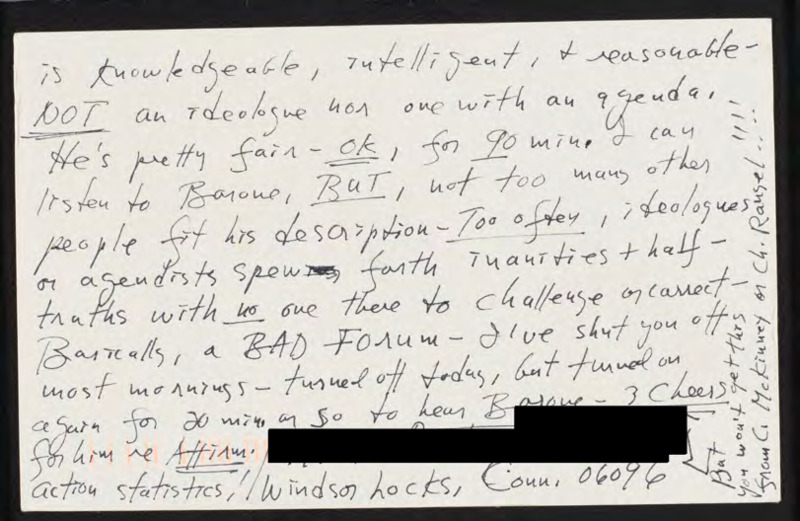 is knowledgeable, intelligent, & reasonable-
NOT an ideologue nor one with an agenda.
He's pretty fair - OK, for 90 min. I can
listen to Barone, BUT, not too many other
people fit his description - Too often, ideologues
or agendists spew forth inanities + half-
truths with no one there to challenge or correct-
Basically, a BAD FORUM - I've shut you off
most mornings - turned off today, but turned on
again for 20 min. or so to hear Barone - 3 Cheers
for him re Affirm.
action statistics! Windsor Locks, Conn. 06096
But
you won't get this !!!!
from C. McKinney or Ch. Rangel...